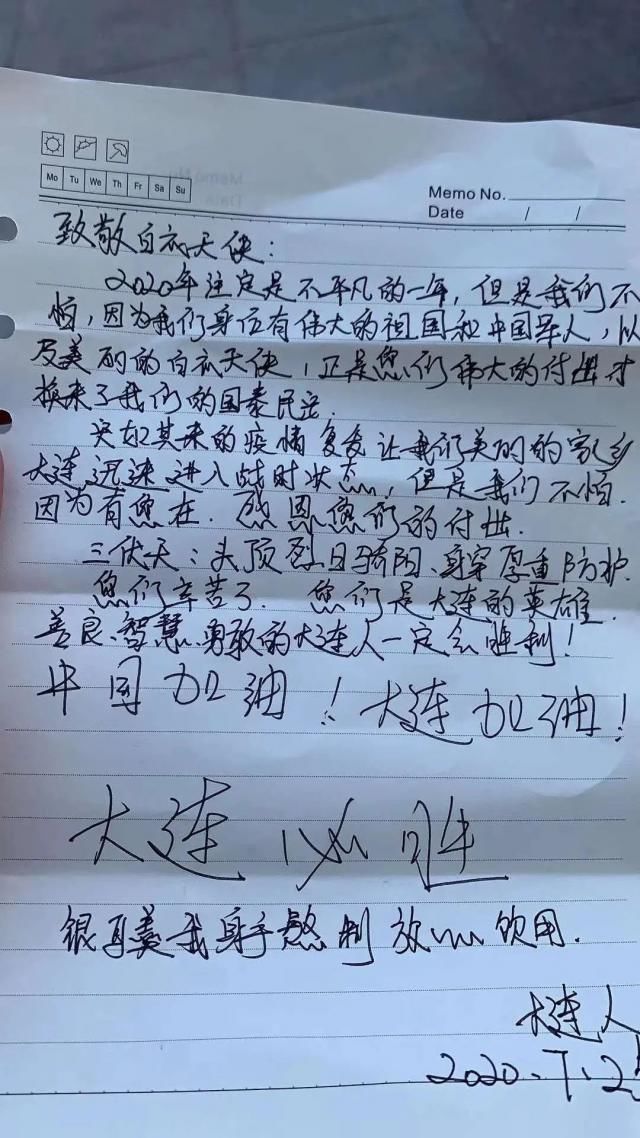 Mo Tu We Th Fr Sa Su
Memo No.
Date / /
致敬白衣天使：
2020年注定是不平凡的一年，但是我们不
怕，因为我们身位有伟大的祖国和中国军人，以
及美丽的白衣天使，正是您们伟大的付出才
换来了我们的国泰民安.
突如其来的疫情复发让我们美丽的家乡
大连迅速进入战时状态，但是我们不怕.
因为有您在. 感恩您们的付出.
三伏天：头顶烈日骄阳、身穿厚重防护.
您们辛苦了. 您们是大连的英雄.
善良、智慧、勇敢的大连人一定会胜利！
中国加油！大连加油！
大连必胜
银耳羹我身手熬制放心饮用.
大连人
2020.7.2